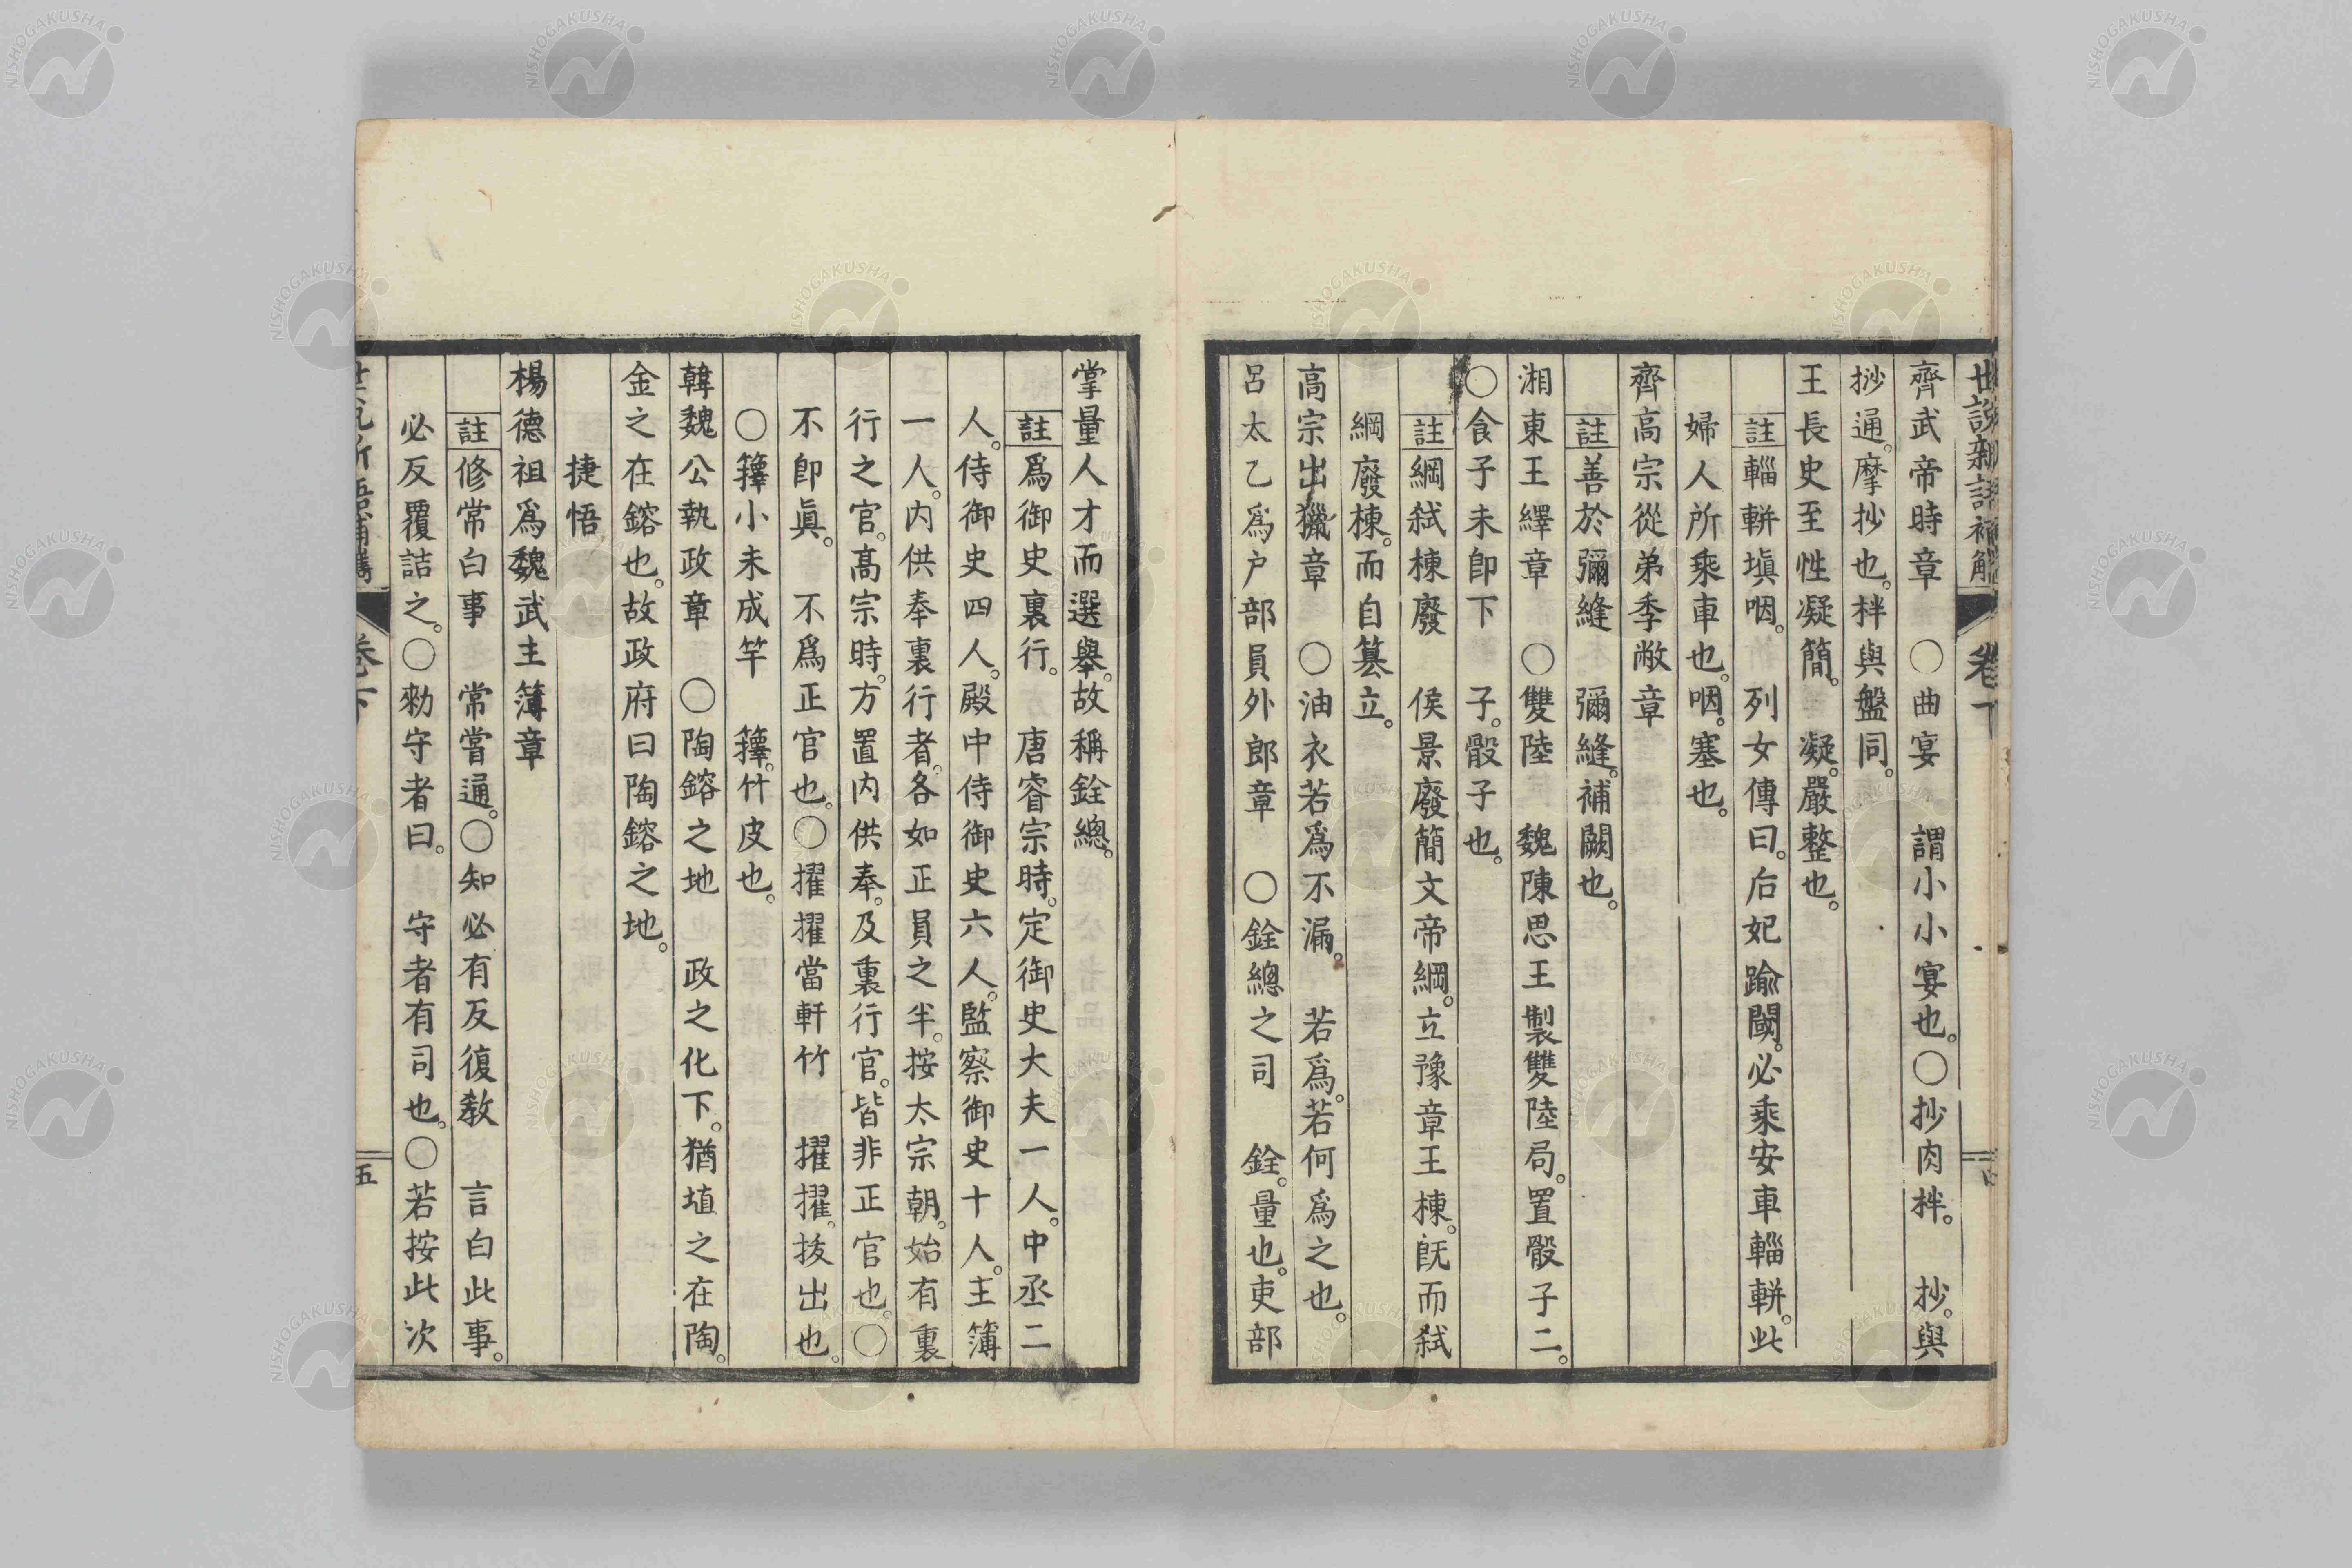 世説新語補觿 卷下
齊武帝時章　〇曲宴　謂小小宴也。〇抄肉柈。　抄。與
挱通。摩抄也。柈與盤同。
王長史至性凝簡。　凝。嚴整也。
註輜軿塡咽。　列女傳曰。后妃踰閾。必乘安車輜軿。此
婦人所乘車也。咽。塞也。
齊高宗從弟季敞章
註善於彌縫　彌縫。補闕也。
湘東王繹章　〇雙陸　魏陳思王製雙陸局。置骰子二。
〇食子未卽下　子。骰子也。
註綱弑棟廢　侯景廢簡文帝綱。立豫章王棟。旣而弑
綱廢棟。而自簒立。
高宗出獵章　〇油衣若爲不漏。　若爲。若何爲之也。
呂太乙爲户部員外郎章　〇銓總之司　銓。量也。吏部
掌量人才而選舉。故稱銓總。
註爲御史裏行。　唐睿宗時。定御史大夫一人。中丞二
人。侍御史四人。殿中侍御史六人。監察御史十人。主簿
一人。内供奉裏行者。各如正員之半。按太宗朝。始有裏
行之官。髙宗時。方置内供奉。及裏行官。皆非正官也。〇
不卽眞。　不爲正官也。〇擢擢當軒竹　擢擢。拔出也。
〇籜小未成竿　籜。竹皮也。
韓魏公執政章　〇陶鎔之地　政之化下。猶埴之在陶。
金之在鎔也。故政府曰陶鎔之地。
捷悟
楊德祖爲魏武主簿章
註修常白事　常嘗通。〇知必有反復教　言白此事。
必反覆詰之。〇勑守者曰。　守者有司也。〇若按此次
卷下 五